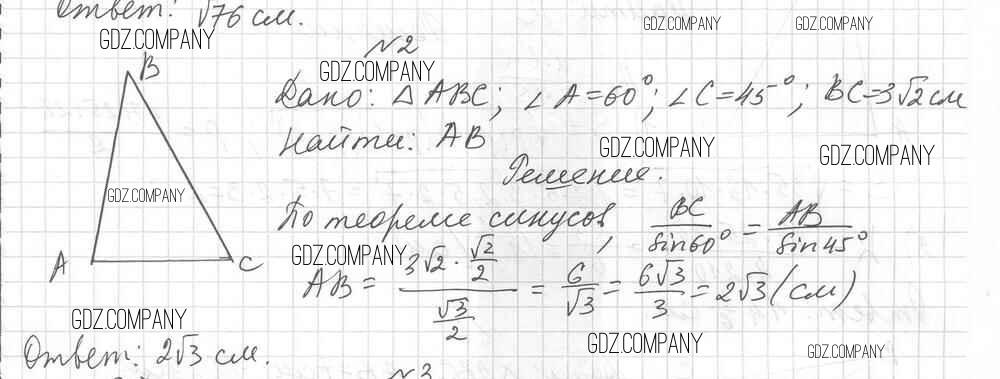 Ответ: √76 см.
GDZ.COMPANY GDZ.COMPANY GDZ.COMPANY
№2
GDZ.COMPANY
B
Дано: △ABC; ∠A=60°; ∠C=45°; BC=3√2 см
Найти: AB
GDZ.COMPANY GDZ.COMPANY
Решение.
GDZ.COMPANY
По теореме синусов, BC/sin60° = AB/sin45°
GDZ.COMPANY
A C
AB = (3√2 · √2/2)/(√3/2) = 6/√3 = 6√3/3 = 2√3 (см)
GDZ.COMPANY GDZ.COMPANY GDZ.COMPANY
Ответ: 2√3 см.
№3